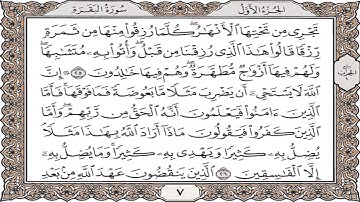 الجزء الأول سورة البقرة
تَجْرِى مِن تَحْتِهَا ٱلْأَنْهَٰرُ كُلَّمَا رُزِقُوا۟ مِنْهَا مِن ثَمَرَةٍ
رِّزْقًا قَالُوا۟ هَٰذَا ٱلَّذِى رُزِقْنَا مِن قَبْلُ وَأُتُوا۟ بِهِۦ مُتَشَٰبِهًا
وَلَهُمْ فِيهَآ أَزْوَٰجٌ مُّطَهَّرَةٌ وَهُمْ فِيهَا خَٰلِدُونَ ٢٥ إِنَّ
ٱللَّهَ لَا يَسْتَحْىِۦٓ أَن يَضْرِبَ مَثَلًا مَّا بَعُوضَةً فَمَا فَوْقَهَا فَأَمَّا
ٱلَّذِينَ ءَامَنُوا۟ فَيَعْلَمُونَ أَنَّهُ ٱلْحَقُّ مِن رَّبِّهِمْ وَأَمَّا
ٱلَّذِينَ كَفَرُوا۟ فَيَقُولُونَ مَاذَآ أَرَادَ ٱللَّهُ بِهَٰذَا مَثَلًا
يُضِلُّ بِهِۦ كَثِيرًا وَيَهْدِى بِهِۦ كَثِيرًا وَمَا يُضِلُّ بِهِۦٓ
إِلَّا ٱلْفَٰسِقِينَ ٢٦ ٱلَّذِينَ يَنقُضُونَ عَهْدَ ٱللَّهِ مِنۢ بَعْدِ
٧